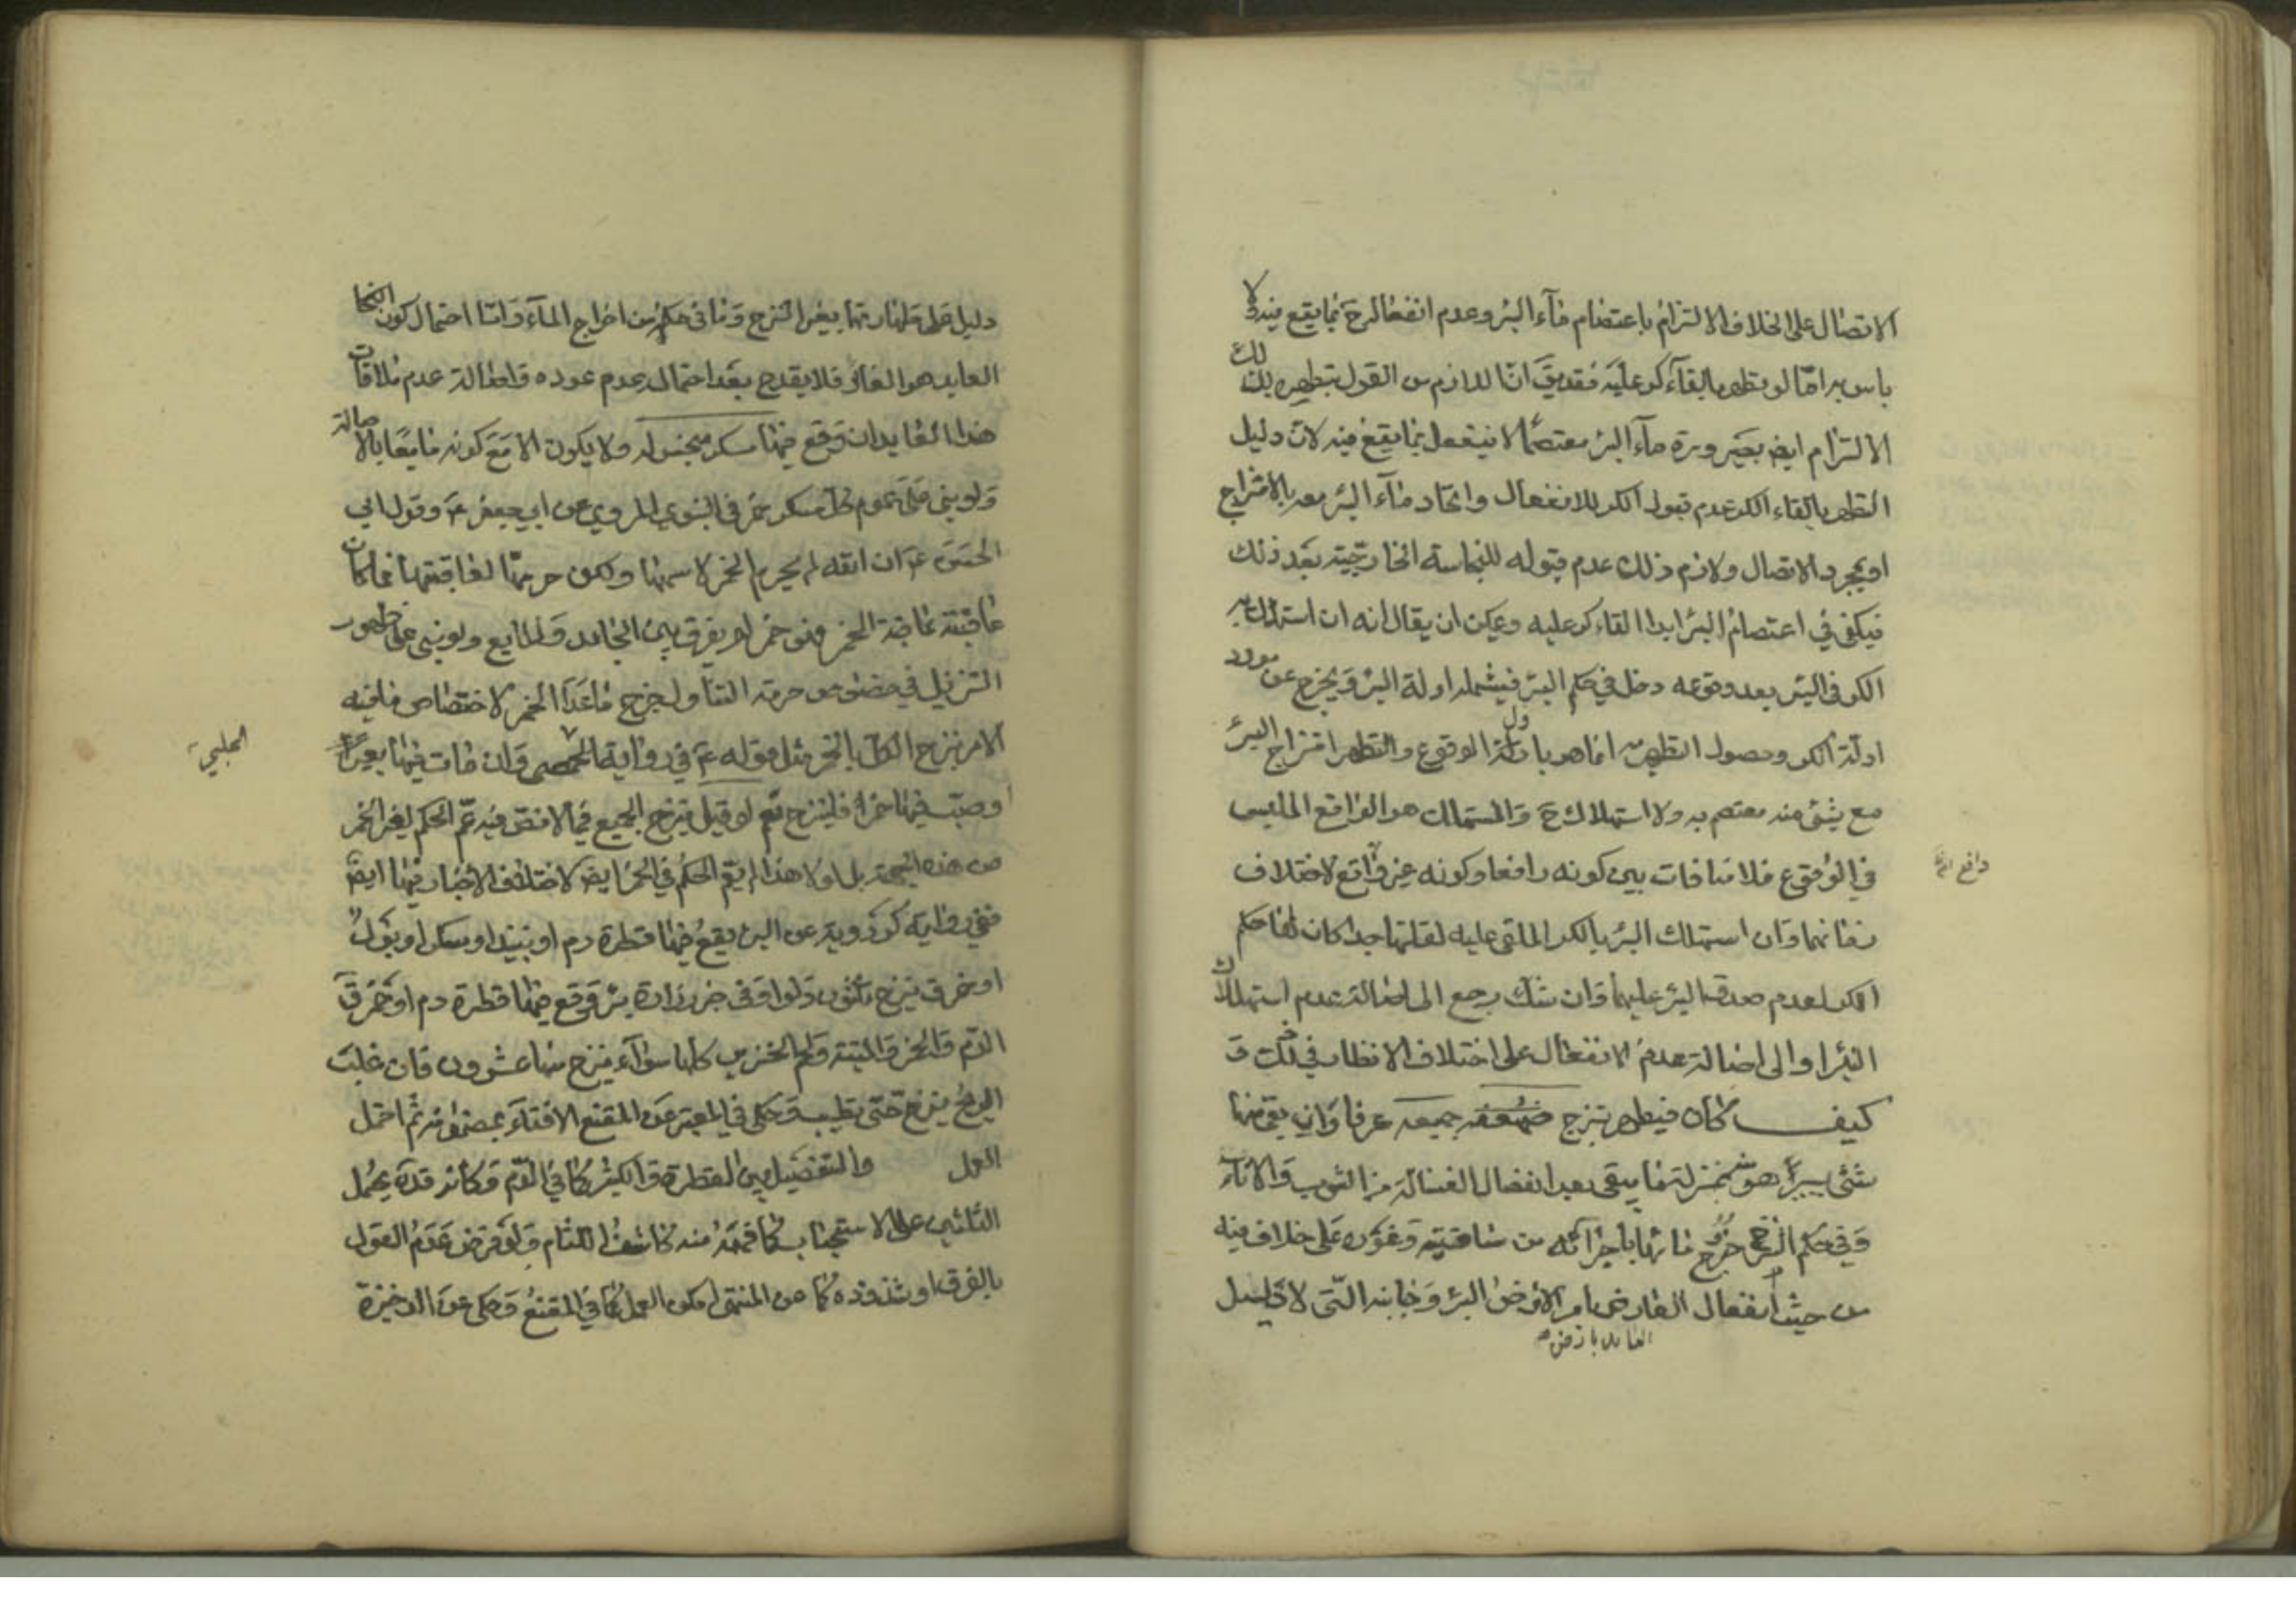 الاتصال على الخلاف الالتزام باعتصام مآء البئر وعدم انفعاله ح بما يقع فيه ولا
باس به امّا لو تطهر بالقآء كر عليه فقد يق انّ اللازم من القول بتطهره بذلك
الالتزام ايض بصيرورة مآء البئر معتصمًا لا ينفعل بما يقع فيه لانّ دليل
التطهر بالقاء الكر عدم قبول الكر للانفعال واتحاد مآء البئر معه بالامتزاج
او بمجرد الاتصال ولازم ذلك عدم قبوله للنجاسة الخارجيّة بعد ذلك
فيكفى في اعتصام البئر ابدا القاء كر عليه ويمكن ان يقال انه ان استهلك
الكر فى البئر بعد وقوعه دخل في حكم البئر فيشمله ادلة البئر ويخرج عن مورد
ادلّة الكر وحصول التطهير انما هو باول الوقوع والتطهر امتزاج البئر
مع شئ منه معتصم به ولا استهلاك ح والمستهلك هو الواقع
في الوقوع فلا منافات بين كونه رافعا وكونه غير واقع لاختلاف
زمانهما وان استهلك البئر بالكر الملقى عليه لقلتها جدا كان لها حكم
الكر لعدم صدق البئر عليها وان شك رجع الى اصالة عدم استهلاك
البئر او الى اصالة عدم الانفعال على اختلاف الانظار في ذلك و
كيف كان فيطهر بنزح جميعه عرفا وان بقى منها
شئ يسير هو بمنزلة ما يبقى بعد انفصال الغسالة من الثوب والاناء
وفي حكم النزح خروج مائها باجرائه من ساقية ونحوه على خلاف فيه
من حيث انفعال العارض بامر الارض البئر وجانبه التى لا دليل
العايد بارض
دافع
دليل على طهارتها بغير النزح وما فى حكمه من اخراج المآء وامّا احتمال كون النجا
العايد هو الغائر فلا يقدح بعد احتمال عدم عوده واصالة عدم ملاقات
هذا العايد ان وقع فيها مسكر منجس له ولا يكون الا مع كونه مايعًا بالاصالة
ولو بنى على عموم كل مسكر خمر في النبوي المروي عن ابي جعفر ع وقول ابي
الحسن ع ان الله لم يحرم الخمر لاسمها ولكن حرمها لعاقبتها فما كان
عاقبته عاقبة الخمر فهو خمر لم يفرق بين الجامد والمايع ولو بنى على ظهور
التنزيل في خصوص حرمة التناول خرج ما عدا الخمر لاختصاص ما فيه
الامر بنزح الكل بالخمر مثل قوله ع في رواية وان مات فيها بعير
الحلبي
او صبّ فيها خمر فلينزح نعم لو قيل بنزح الجميع فيما لا نص فيه عمّ الحكم لغير الخمر
من هذه الجهة بل لولا هذا لم يتم الحكم في الخمر ايض لاختلاف الاخبار فيها ايض
ففى رواية كردويه عن البئر يقع فيها قطرة دم او نبيذ او مسكر او بول
او خمر ق ينزح ثلثون دلوا وفى خبر زرارة بئر وقع فيها قطرة دم او خمر ق
الدم والخمر والميتة ولحم الخنزير كلها سوآء ينزح منها عشرون فان غلبت
الريح ينزح حتى تطيب وحكى في المعتبر عن المقنع الافتاء بمضمونه ثم احتمل
العمل والتفصيل بين القطرة والكثير كما في الدم وكانه قده يحمل
الثلثين على الاستحباب
بالفرق او شذوذه كما عن المنتهى امكن العمل بما في المقنع وحكى عن الذخيرة